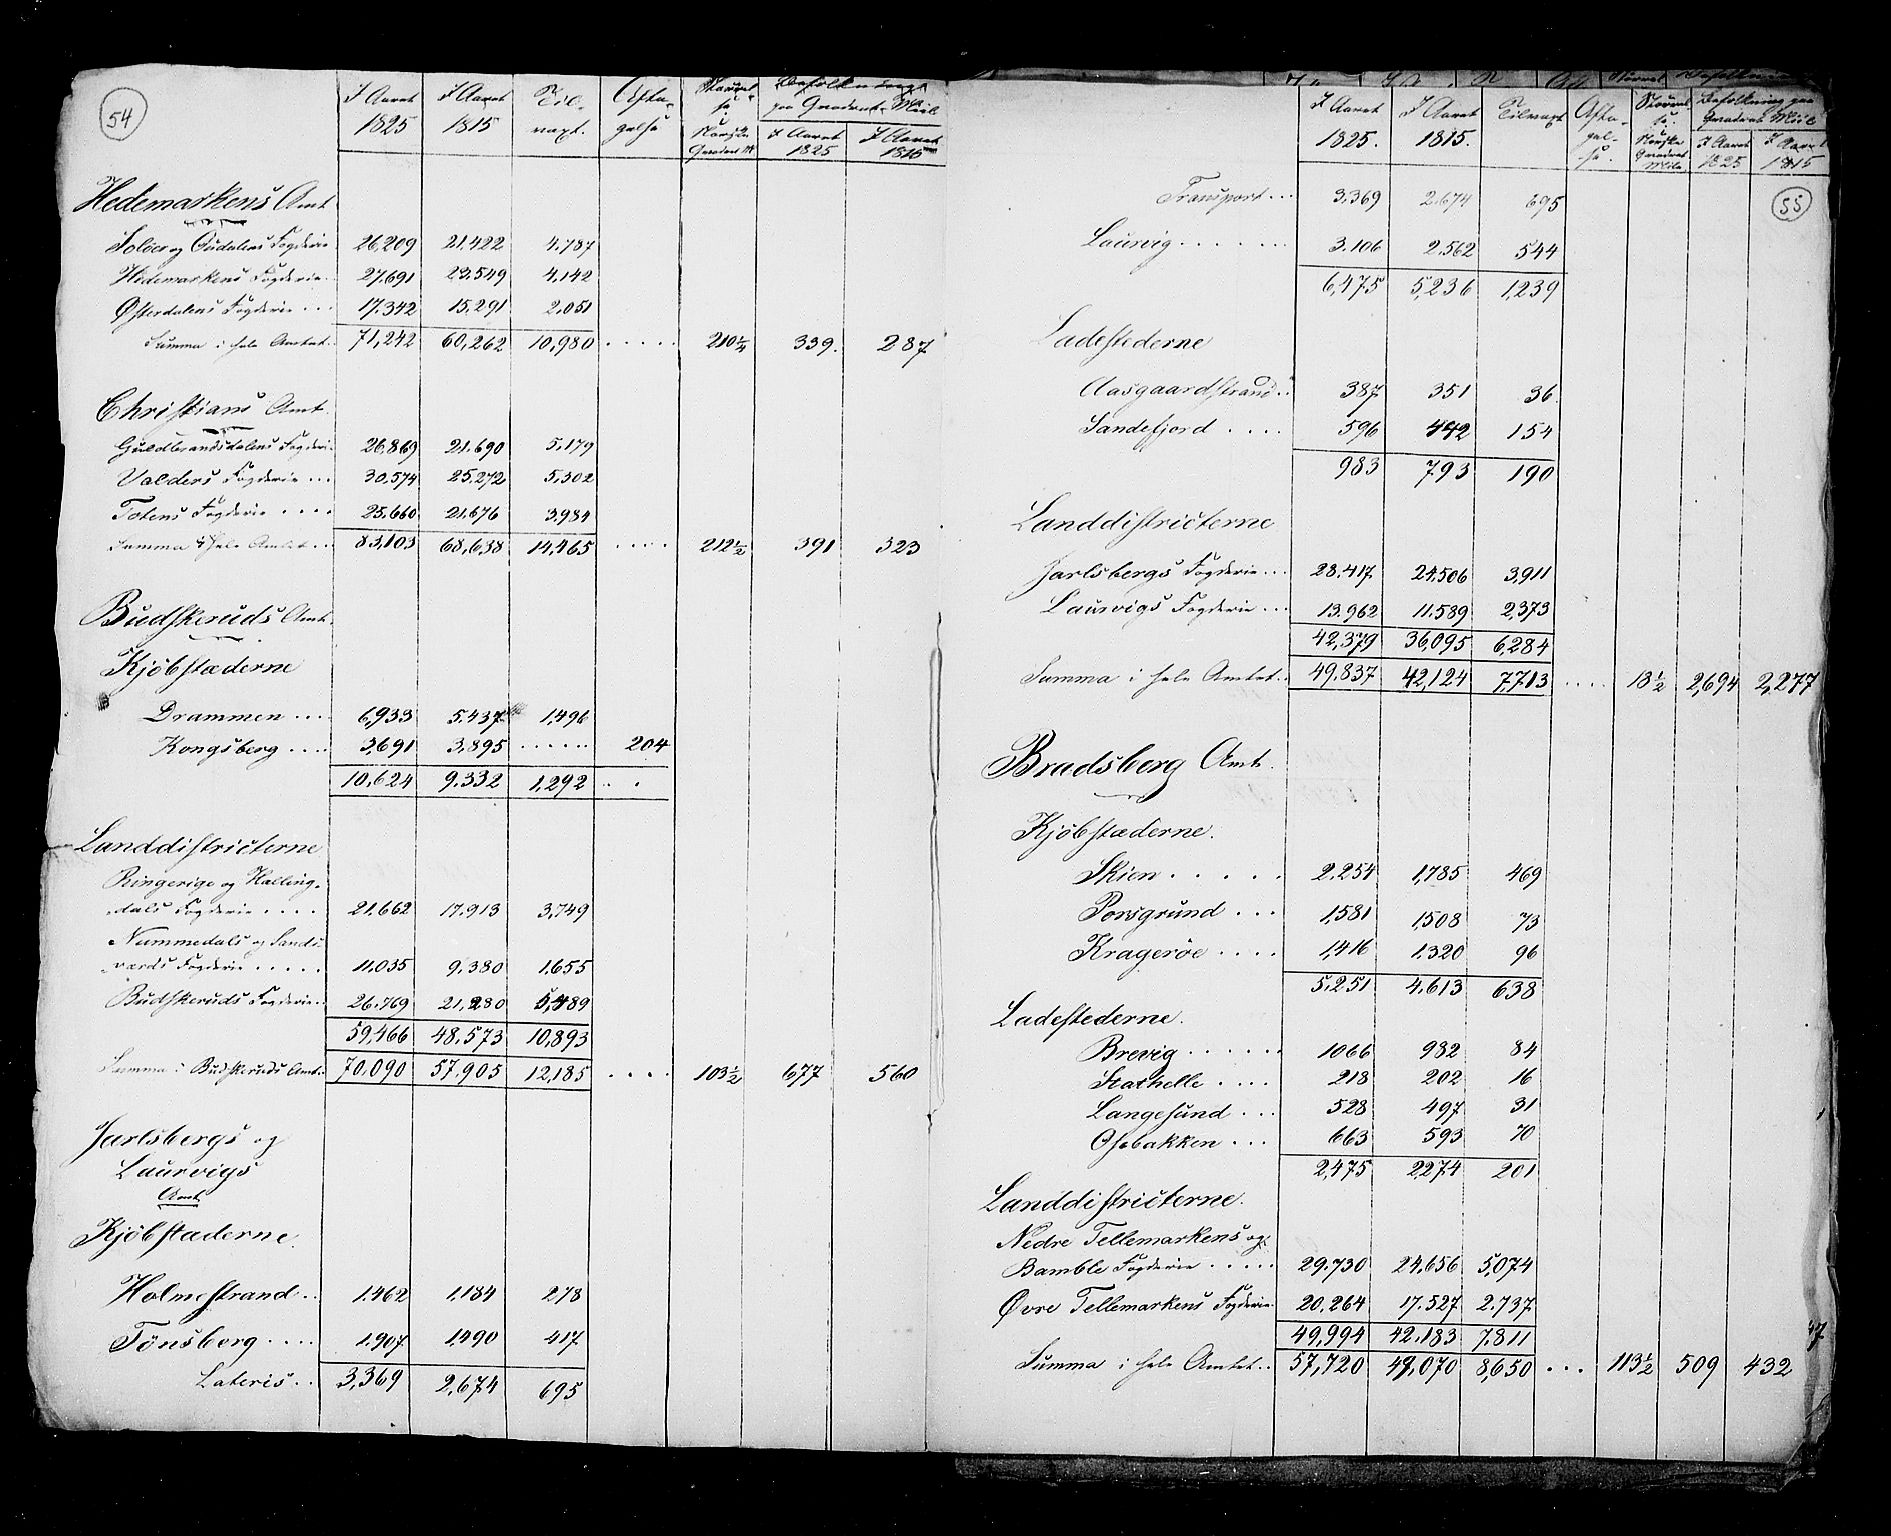 54
I Aaret 1825 I Aaret 1815 Til- vaxt. Afta- gelse Størrel- se. Norske Qvadrat M. Befolkningen paa Qvadrat Miil I Aaret 1825 I Aaret 1815
Hedemarkens Amt
Soløer og Oudalens Fogderie 26,209 21,422 4,787
Hedemarkens Fogderie.. 27,691 23,549 4,142
Østerdalens Fogderie ... 17,342 15,291 2,051
Summa i hele Amtet.. 71,242 60,262 10,980 ..... 210¼ 339. 287
Christians Amt.
Guldbrandsdalens Fogderie 26,869 21,690 5,179
Valders Fogderie ... 30,574 25,272 5,302
Totens Fogderie .... 25,660 21,676 3,984
Summa i hele Amtet... 83,103 68,638 14,465 .... 212½ 391 323
Budskeruds Amt.
Kjøbstæderne
Drammen .... 6,933 5,437 1,496
Kongsberg .... 3,691 3,895 ...... 204
10,624 9,332 1,292 . .
Landdistricterne
Ringerige og Halling-
dals Fogderie .... 21,662 17,913 3,749
Nummedals og Sands-
værds Fogderie ..... 11,035 9,380 1,655
Budskeruds Fogderie.. 26,769 21,280 5,489
59,466 48,573 10,893
Summa i Budskeruds Amt.. 70,090 57,905 12,185 .... 103½ 677 560
Jarlsbergs og
Laurvigs
Amt
Kjöbstæderne.
Holmestrand.. 1,462 1,184 278
Tönsberg .... 1,907 1,490 417
Lateris.. 3,369 2,674 695
I Aaret 1825. I Aaret 1815. Tilvaxt Afta- gel- se. Størrel- se. Norske Qvadrat Mile. Befolkning paa Qvadrat Miil I Aaret 1825 I Aaret 1815
55
Transport... 3,369 2,674 695
Laurvig ....... 3,106 2,562 544
6,475 5,236 1,239
Ladestederne
Aasgaardstrand.. 387 351 36
Sandefjord .... 596 442 154
983 793 190
Landdistricterne
Jarlsbergs Fogderie... 28,417 24,506 3,911
Laurvigs Fogderie... 13,962 11,589 2,373
42,379 36,095 6,284
Summa i hele Amtet.. 49,837 42,124 7,713 .... 18½ 2,694 2,277
Bradsberg Amt.
Kjöbstæderne.
Skien ..... 2,254 1,785 469
Porsgrund ... 1,581 1,508 73
Kragerøe .... 1,416 1,320 96
5,251 4,613 638
Ladestederne.
Brevig ...... 1066 982 84
Stathelle .... 218 202 16
Langesund ... 528 497 31
Osebakken ... 663 593 70
2,475 2,274 201
Landdistricterne.
Nedre Tellemarkens og
Bamble Fogderie ..... 29,730 24,656 5,074
Øvre Tellemarkens Fogderie 20,264 17,527 2,737
49,994 42,183 7,811
Summa i hele Amtet.. 57,720 49,070 8,650 ... 113½ 509 432